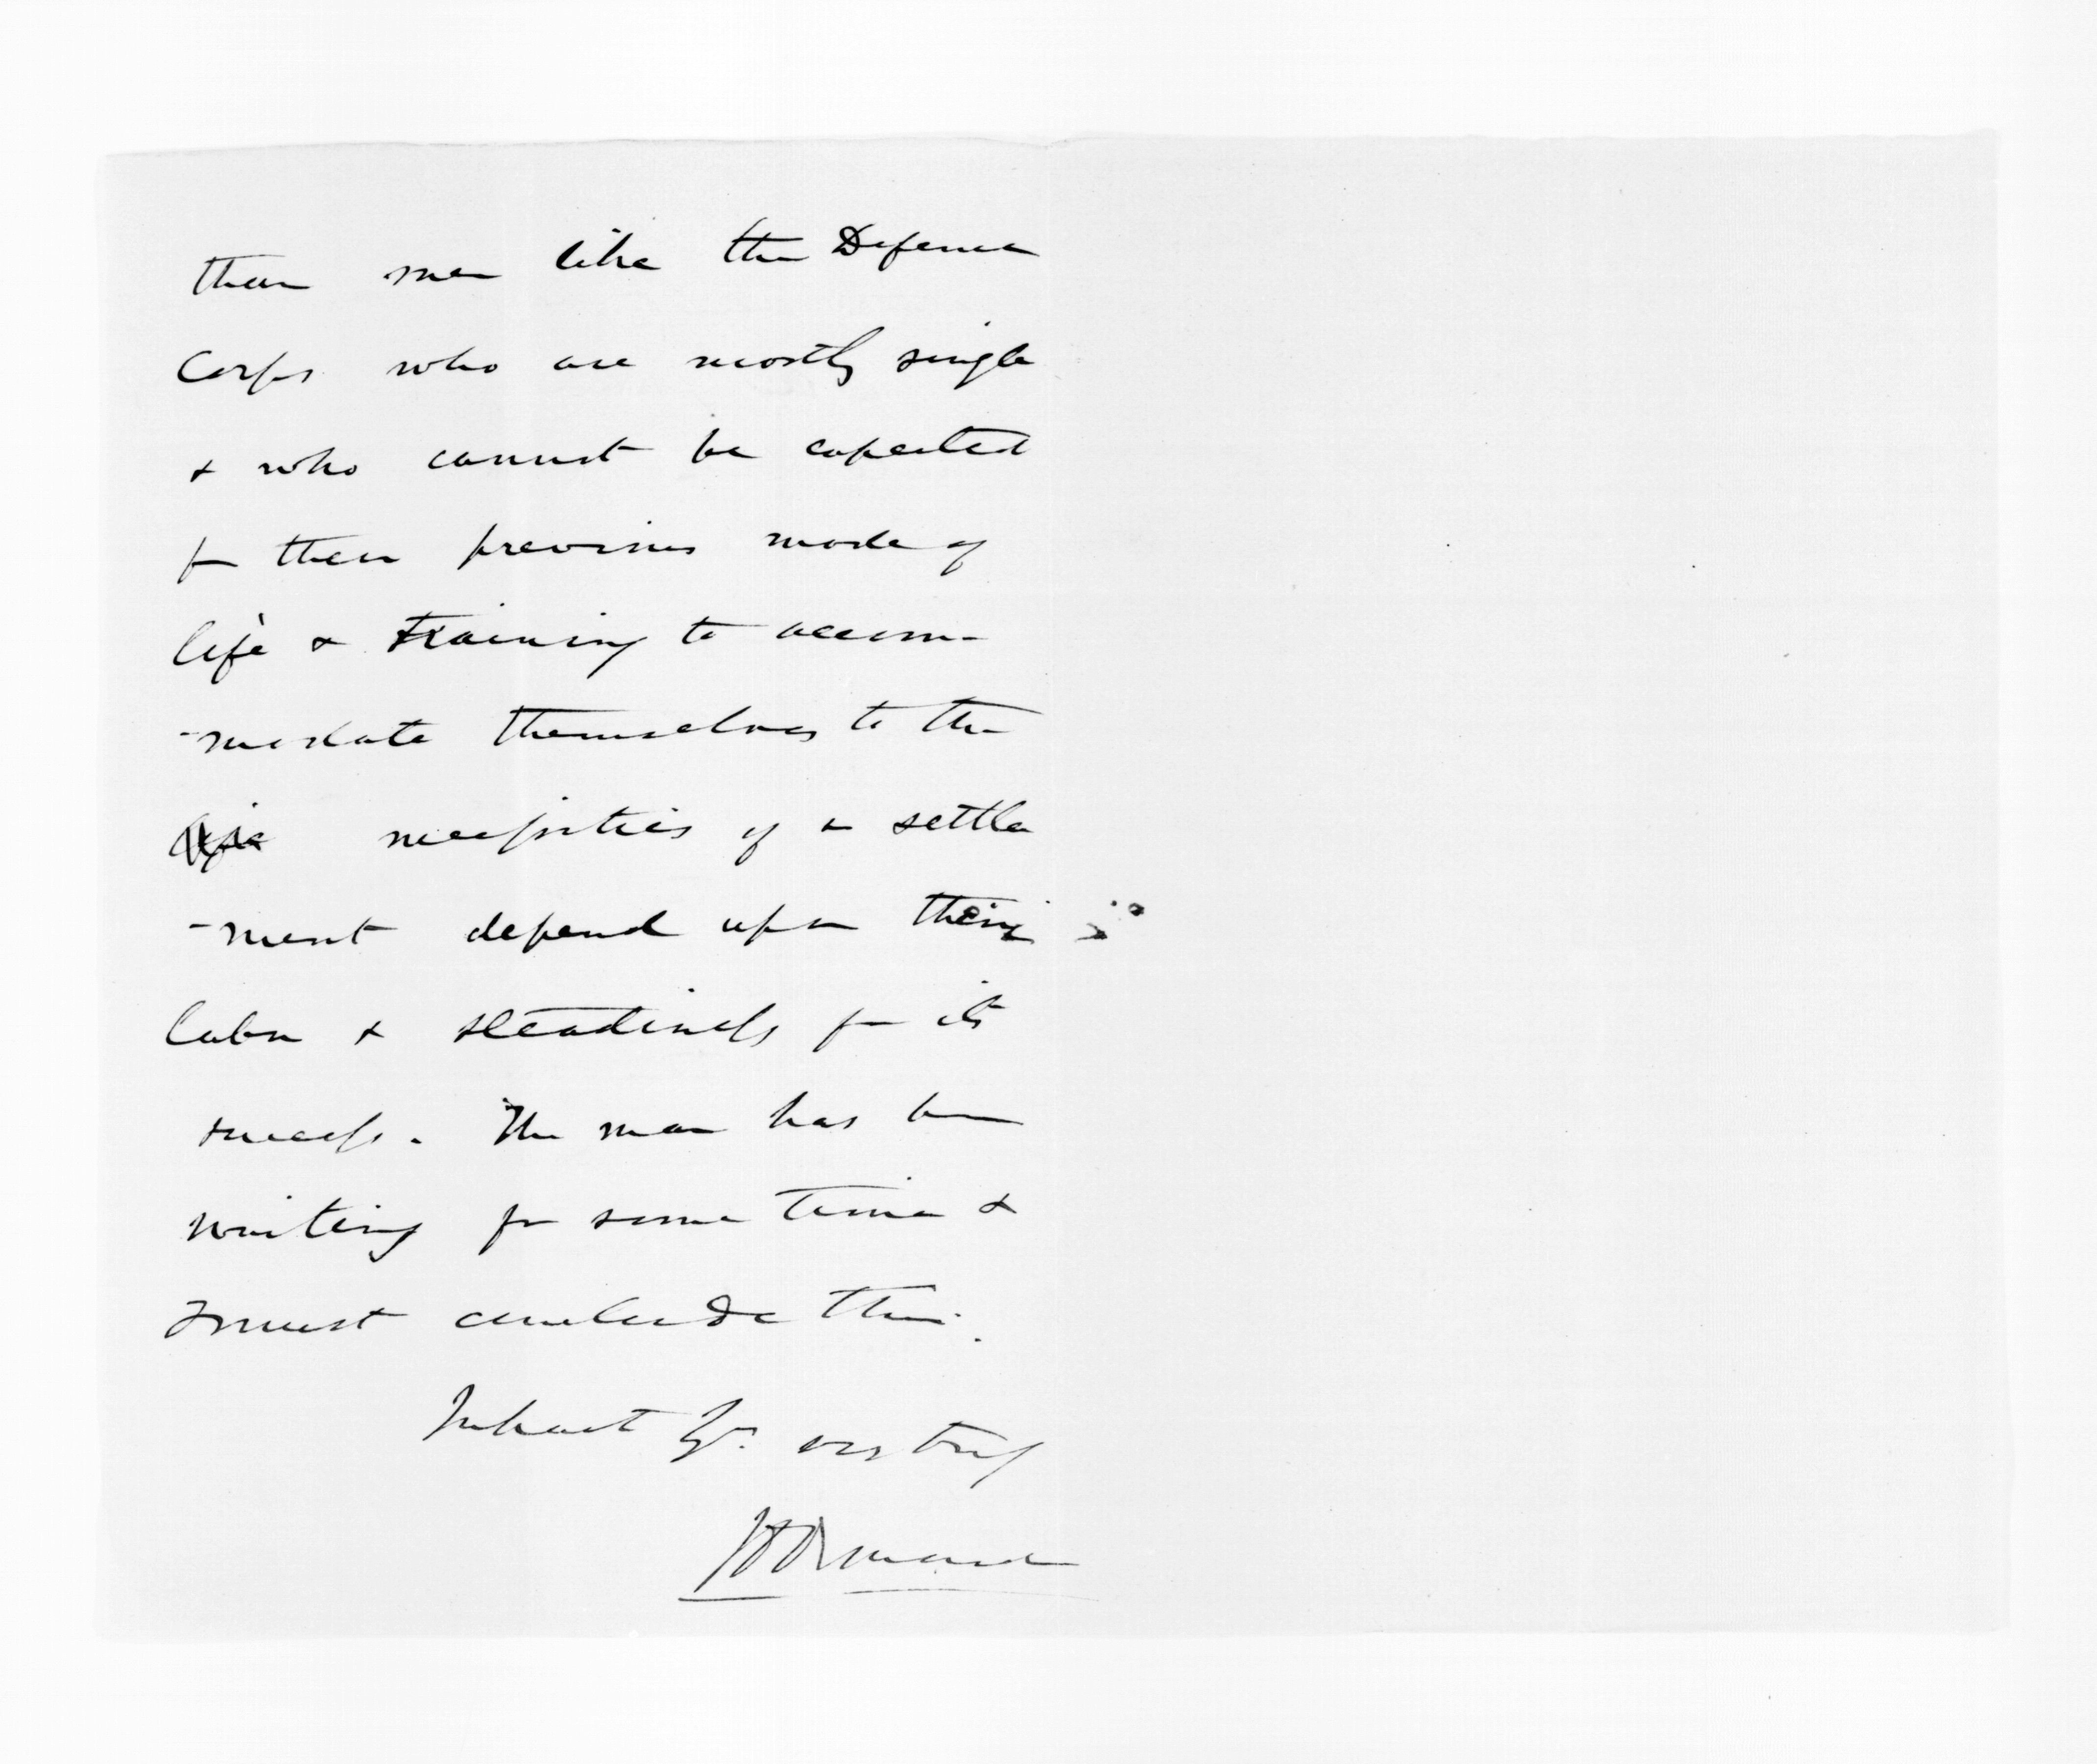 than men like the Defence
Corps who are mostly single
& who cannot be expected
for their previous mode of
life & training to accom-
-modate themselves to the
necessities of a settle
-ment depend upon their
labor & steadiness for its
success. The man has been
waiting for some time &
I must conclude this.
In haste Yrs. very truly
J D Ormond